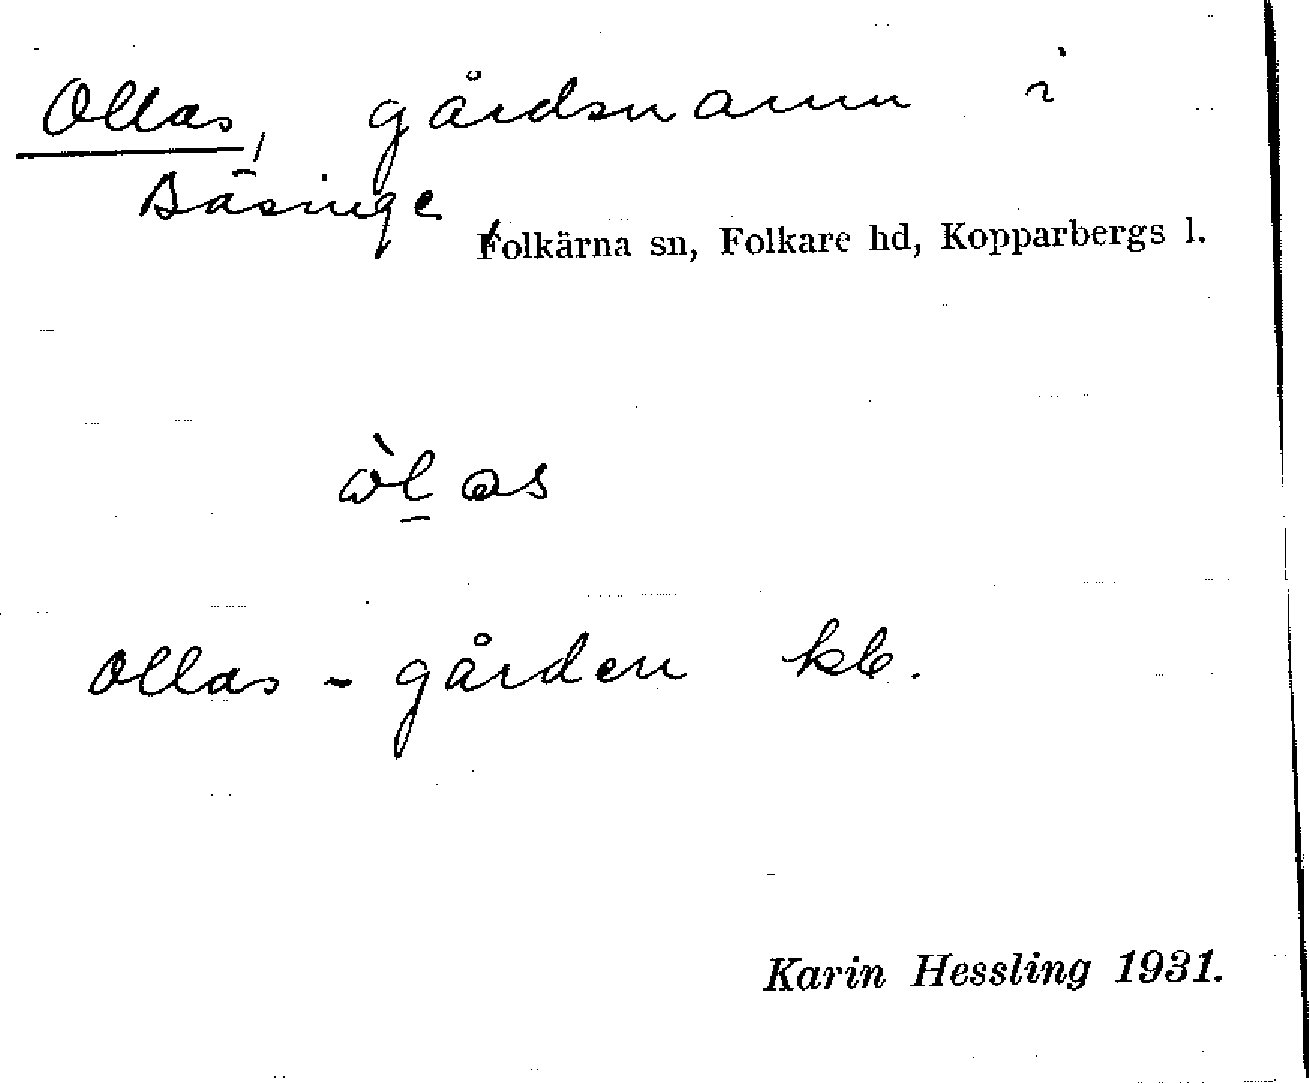 Ollas, gårdsnamn i
Bäsinge
Folkärna sn, Folkare hd, Kopparbergs l.
Ollas - gården kb.
Karin Hessling 1931.